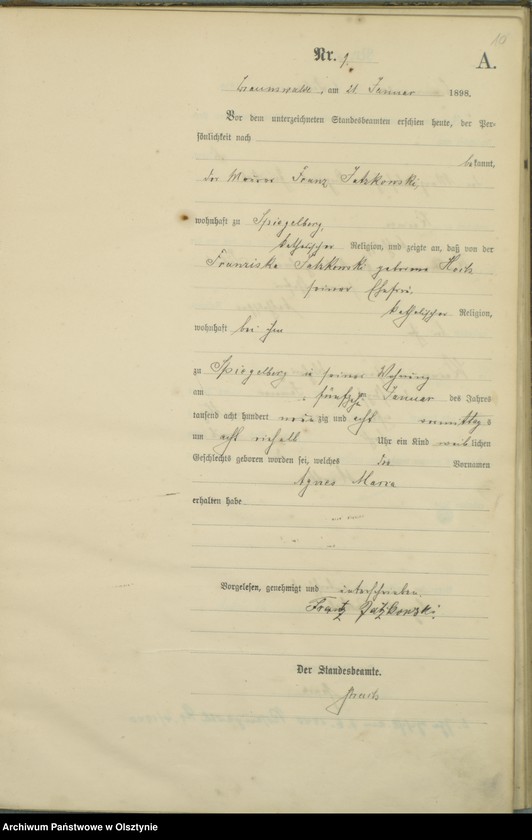 Nr. 9.
A.
Braunswalde, am 21. Januar 1898.
Vor dem unterzeichneten Standesbeamten erschien heute, der Per-
sönlichkeit nach
bekannt,
der Maurer Franz Jatzkowski,
wohnhaft zu Spiegelberg,
katholischer Religion, und zeigte an, daß von der
Franziska Jatzkowski geborene
seiner Ehefrau,
katholischer Religion,
wohnhaft bei ihm
zu Spiegelberg in seiner Wohnung
am fünfzehnten Januar des Jahres
tausend acht hundert neunzig und acht Vormittags
um acht einhalb Uhr ein Kind weiblichen
Geschlechts geboren worden sei, welches die Vornamen
Agnes Maria
erhalten habe
Vorgelesen, genehmigt und unterschrieben.
Frantz Jatzkowski.
Der Standesbeamte.
Archiwum Państwowe w Olsztynie